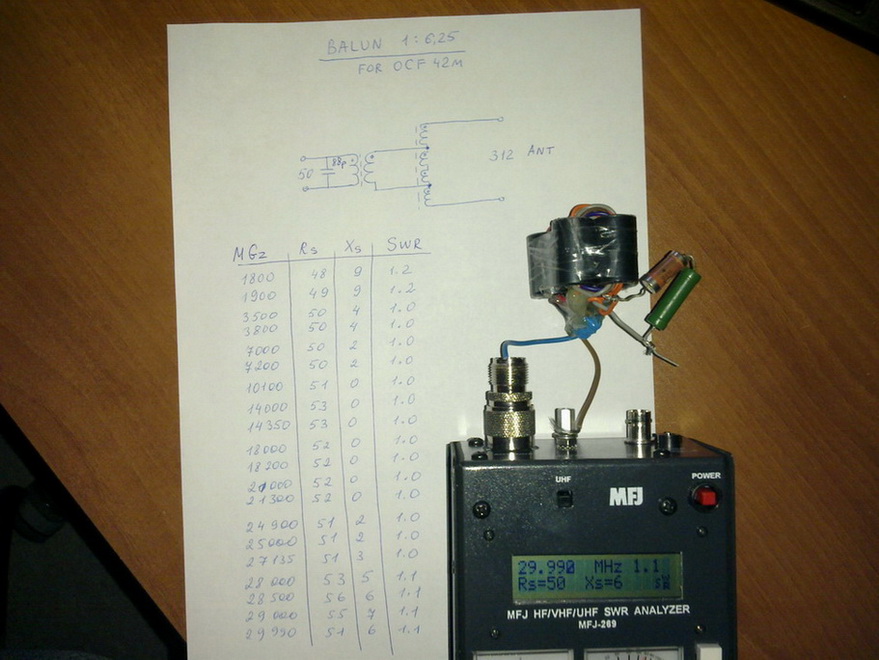 BALUN 1:6,25
FOR OCF 42M
50
312 ANT
MGz Rs Xs SWR
1800 48 9 1.2
1900 49 9 1.2
3500 50 4 1.0
3800 50 4 1.0
7000 50 2 1.0
7200 50 2 1.0
10100 51 0 1.0
14000 53 0 1.0
14350 53 0 1.0
18000 52 0 1.0
18200 52 0 1.0
21000 52 0 1.0
21300 52 0 1.0
24900 51 2 1.0
25000 51 2 1.0
27135 51 3 1.0
28000 53 5 1.1
28500 56 6 1.1
29000 55 7 1.1
29990 51 6 1.1
UHF
MFJ
POWER
29.990 MHz 1.1
Rs=50 Xs=6
MFJ HF/VHF/UHF SWR ANALYZER
MFJ-269